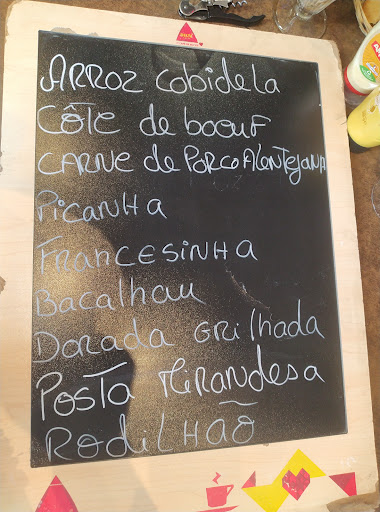 ARROZ Cobidela
CÔTE de boeuf
CARNE de PORCO AlenTejana
PicanHa
FRANCESINHA
Bacalhau
DoRada GRilhada
POSTA MiRandesa
RodilHÃO